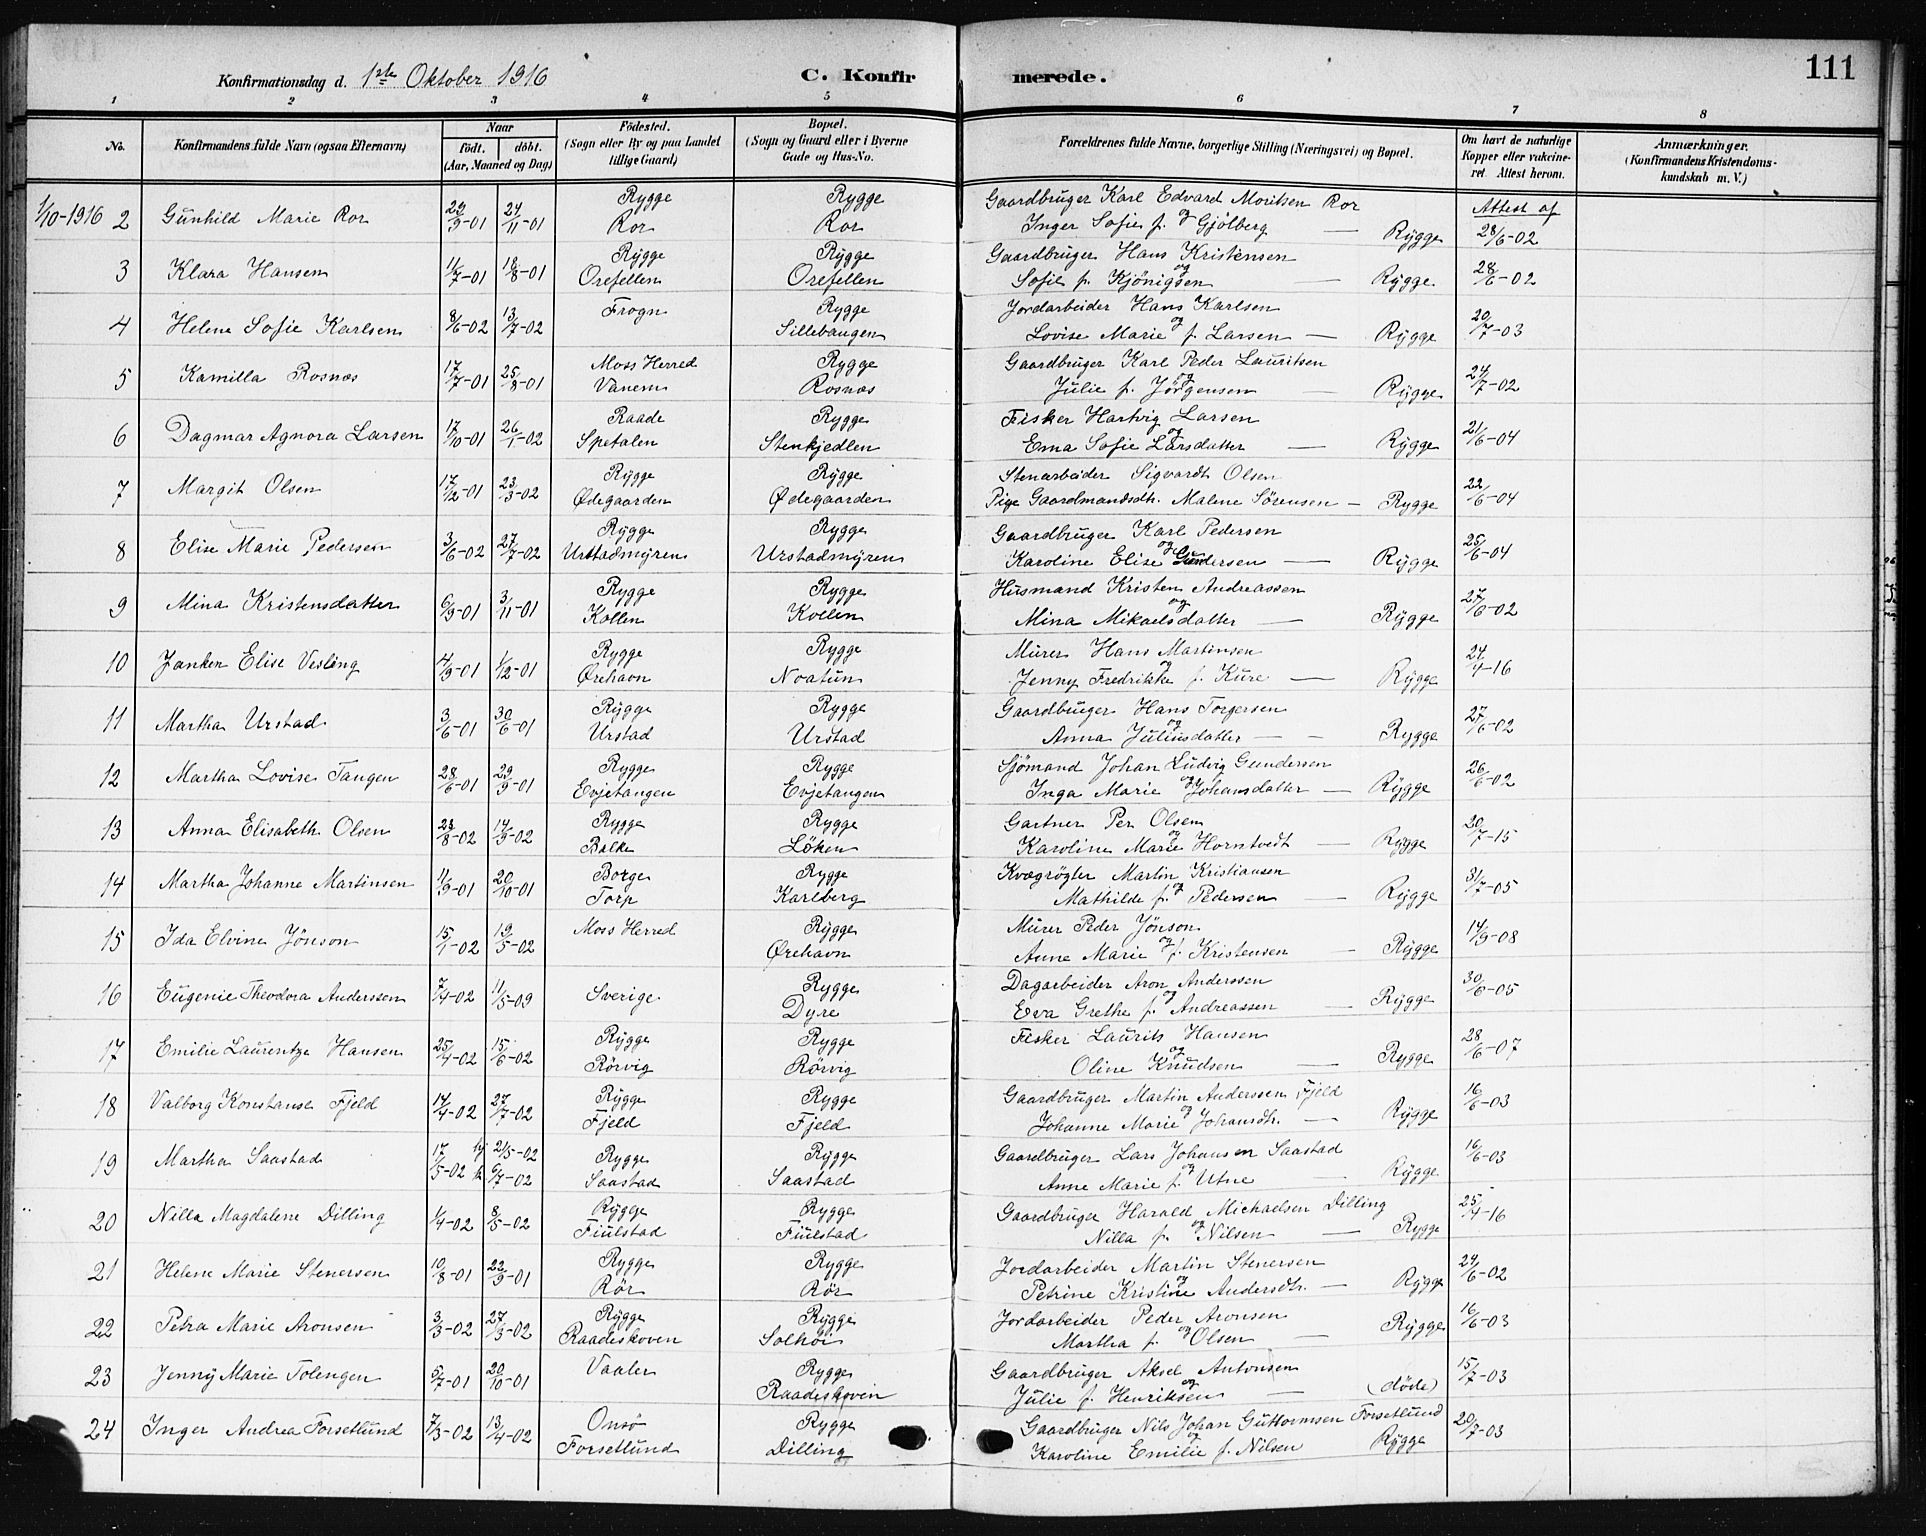 Konfirmationsdag d. 1ste Oktober 1916 C. Konfirmerede. 111
1 2 3 4 5 6 7 8
No. Konfirmandens fulde Navn (ogsaa Efternavn) Naar født. døbt. (Aar, Maaned og Dag) Fødested. (Sogn eller By og paa Landet tillige Gaard) Bopæl. (Sogn og Gaard eller i Byerne Gade og Hus-No. Forældrenes fulde Navne, borgerlige Stilling (Næringsvei) og Bopæl. Om havt de naturlige Kopper eller vakcineret. Attest herom. Anmærkninger. (Konfirmandens Kristendomskundskab m. V.)
1/10-1916 2 Gunhild Marie Ror 23/9-01 24/11-01 Rygge Ror Rygge Ror Gaardbruger Karl Edvard Moritsen Ror og Inger Sofie f. Gjölberg — Rygge Attest af 28/6-02
3 Klara Hansen 11/7-01 18/8-01 Rygge Orefellen Rygge Orefellen Gaardbruger Hans Kristensen og Sofie f. Kjönigsen — Rygge 28/6-02
4 Helene Sofie Karlsen 8/6-02 13/7-02 Frogn Rygge Sillebaugen Jordarbeider Hans Karlsen og Lovise Marie f. Larsen — Rygge 20/7-03
5 Kamilla Rosnæs 17/7-01 25/8-01 Moss Herred Vanem Rygge Rosnæs Gaardbruger Karl Peder Lauritsen og Julie f. Jörgensen Rygge 24/7-02
6 Dagmar Agnora Larsen 17/10-01 26/1-02 Raade Spetalen Rygge Stenkjedlen Fisker Hartvig Larsen og Ema Sofie Larsdatter — Rygge 21/6-04
7 Margit Olsen 17/12-01 23/3-02 Rygge Ødegaarden Rygge Ødegaarden Stenarbeider Sigvardt Olsen Pige Gaardmandsdt. Malene Sörensen — Rygge 22/6-04
8 Elise Marie Pedersen 3/6-02 27/7-02 Rygge Urstadmyren Rygge Urstadmyren Gaardbruger Karl Pedersen og Karoline Elise Gundersen — Rygge 25/6-04
9 Mina Kristensdatter 6/9-01 3/11-01 Rygge Kollen Rygge Kollen Husmand Kristen Andreassen og Mina Mikaelsdatter — Rygge 27/6-02
10 Janken Elise Vesling 4/9-01 1/12-01 Rygge Ørehavn Rygge Noatun Murer Hans Martinsen og Jenny Fredrikke f. Kure — Rygge 24/4-16
11 Martha Urstad 3/6-01 30/6-01 Rygge Urstad Rygge Urstad Gaardbruger Hans Torgersen og Anna Juliusdatter — Rygge 27/6-02
12 Martha Lovise Tangen 28/6-01 29/9-01 Rygge Evjetangen Rygge Evjetangen Sjömand Johan Ludvig Gundersen og Inga Marie Johansdatter — Rygge 26/6-02
13 Anna Elisabeth Olsen 23/8-02 14/9-02 Rygge Balke Rygge Löken Gartner Per Olsen og Karoline Marie Horntvedt — Rygge 20/7-15
14 Martha Johanne Martinsen 11/9-01 20/10-01 Borge Torp Rygge Karlberg Kvægrögter Martin Kristiansen og Mathilde f. Pedersen — Rygge 31/7-05
15 Ida Elvine Jönson 15/1-02 19/5-02 Moss Herred Rygge Ørehavn Murer Peder Jönson og Anne Marie f. Kristensen — Rygge 14/9-08
16 Eugenie Theodora Anderssen 7/4-02 11/5-09 Sverige Rygge Dyre Dagarbeider Aron Anderssen og Eva Grethe f. Andreassen — Rygge 30/6-05
17 Emilie Laurentze Hansen 25/4-02 15/6-02 Rygge Rörvig Rygge Rörvig Fisker Laurits Hansen og Oline Knudsen — Rygge 28/6-07
18 Valborg Konstanse Fjeld 14/4-02 27/7-02 Rygge Fjeld Rygge Fjeld Gaardbruger Martin Anderssen Fjeld og Johanne Marie Johansdtr. — Rygge 16/6-03
19 Martha Saastad 17/5-02 hj 21/5-02 k 6/7-02 Rygge Saastad Rygge Saastad Gaardbruger Lars Johansen Saastad og Anne Marie f. Utne Rygge 16/6-03
20 Nilla Magdalene Dilling 1/4-02 8/5-02 Rygge Fiulstad Rygge Fiulstad Gaardbruger Harald Michaelsen Dilling og Nilla f. Nilsen — Rygge 25/4-16
21 Helene Marie Stenersen 10/8-01 22/9-01 Rygge Rör Rygge Rör Jordarbeider Martin Stenersen og Petrine Kristine Andersdtr. — Rygge 24/6-02
22 Petra Marie Aronsen 3/3-02 27/3-02 Rygge Raadeskoven Rygge Solhöi Jordarbeider Peder Aronsen og Martha f. Olsen — Rygge 16/6-03
23 Jenny Marie Tolengen 5/7-01 20/10-01 Vaaler Rygge Raadeskoven Gaardbruger Aksel Antonsen og Julie f. Henriksen — (döde) 15/7-03
24 Inger Andrea Forsetlund 7/3-02 13/4-02 Onsö Forsetlund Rygge Dilling Gaardbruger Nils Johan Guttormsen Forsetlund og Karoline Emilie f. Nilsen Rygge 20/7-03